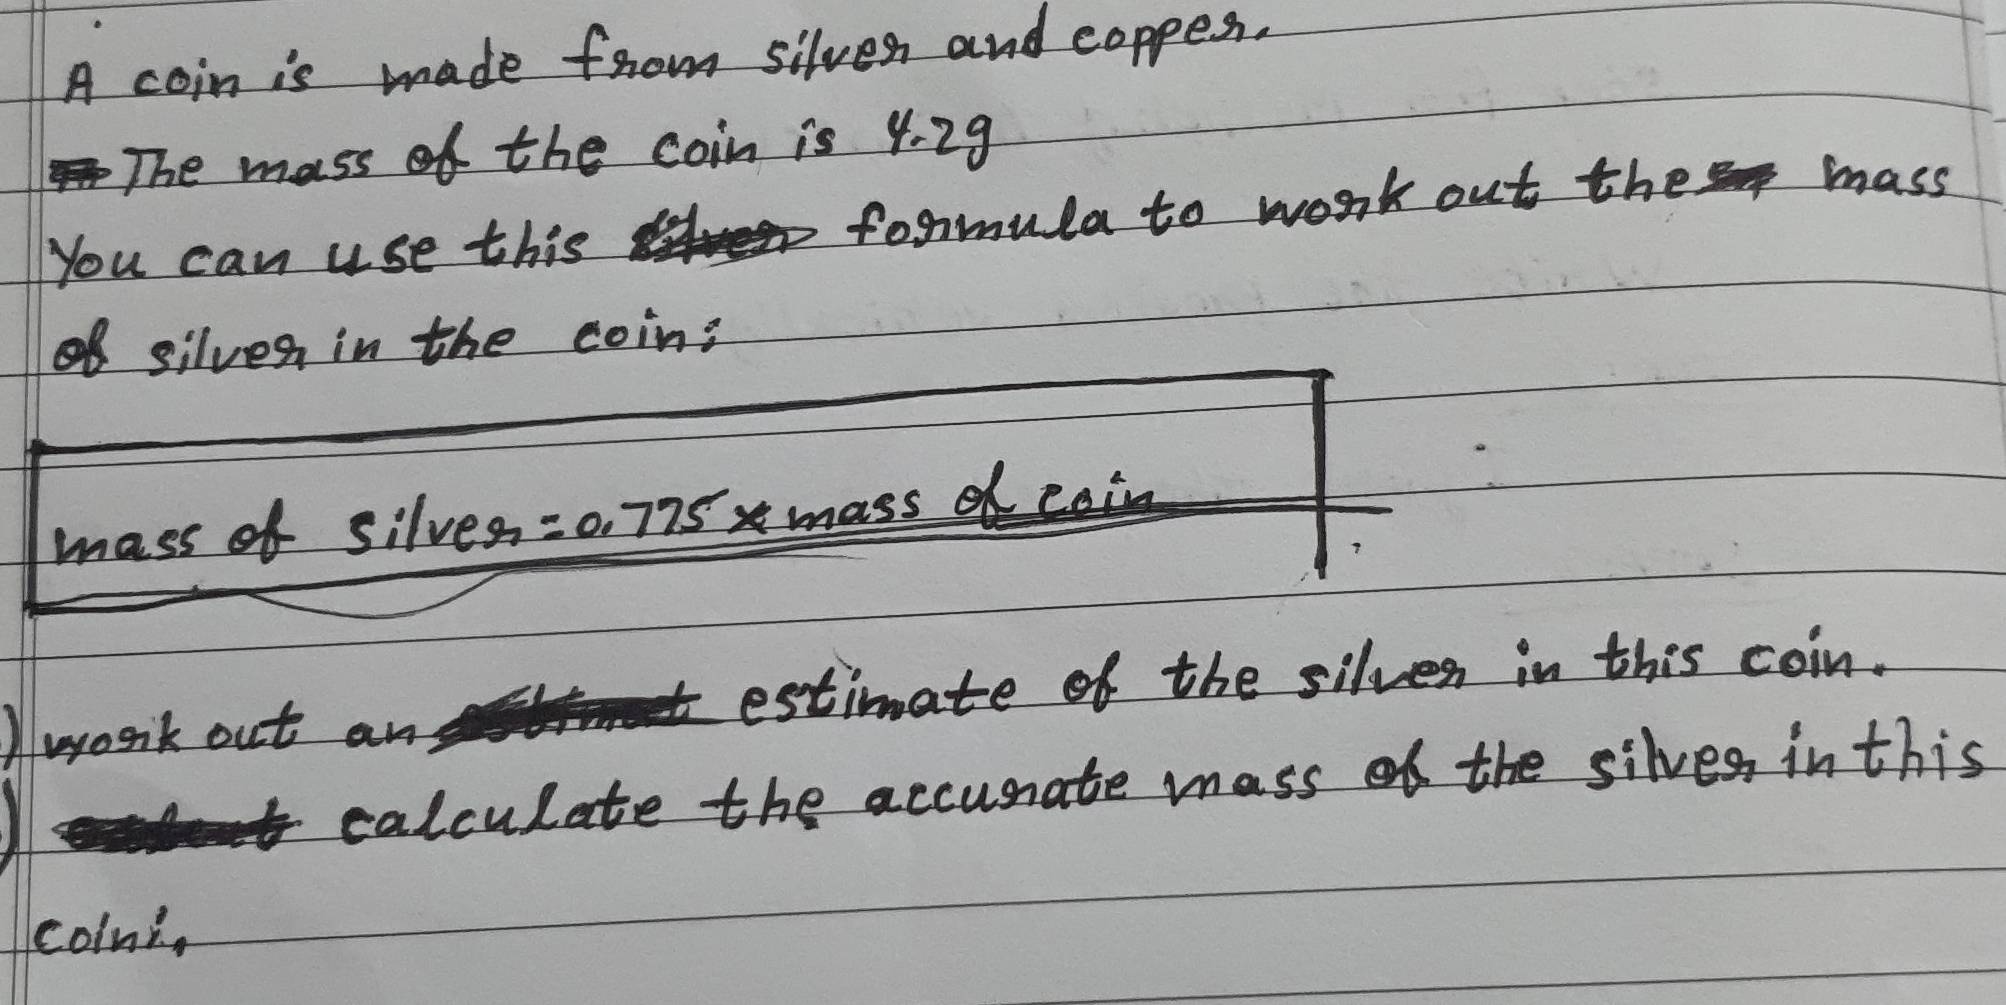 A coin is made from silver and copper.
The mass of the coin is 4.2g
You can use this formula to work out the mass
of silver in the coin:
mass of silver = 0.775 × mass of coin
) work out an estimate of the silver in this coin.
) calculate the accurate mass of the silver in this
coini.